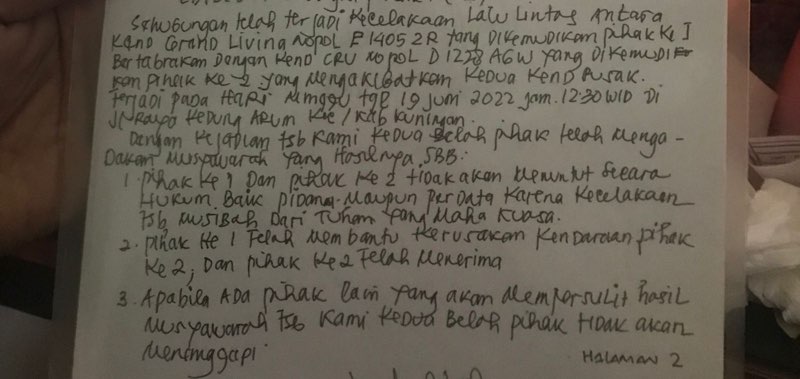 Sehubungan telah terjadi kecelakaan Lalu Lintas Antara
Kend Grand Living Nopol E 1405 ZR yang Dikemudikan pihak ke I
Bertabrakan Dengan Kend CRV Nopol D 1228 AGW yang Dikemudi
kan pihak ke 2 yang mengakibatkan kedua kend rusak.
Terjadi pada Hari Minggu tgl 19 Juni 2022 Jam. 12:30 WIB Di
Jl. Raya Kedung Arum Kec / Kab Kuningan.
Dengan kejadian tsb kami kedua Belah pihak telah menga -
Dakan musyawarah yang Hasilnya, SBB:
1. pihak ke 1 Dan pihak ke 2 tidak akan menuntut secara
Hukum Baik pidana maupun perdata karena kecelakaan
tsb musibah dari Tuhan yang maha kuasa.
2. pihak ke 1 Telah membantu kerusakan kendaraan pihak
ke 2, Dan pihak ke 2 Telah menerima
3. Apabila ADA pihak lain yang akan mempersulit hasil
musyawarah tsb kami kedua Belah pihak tidak akan
menanggapi
HALAMAN 2